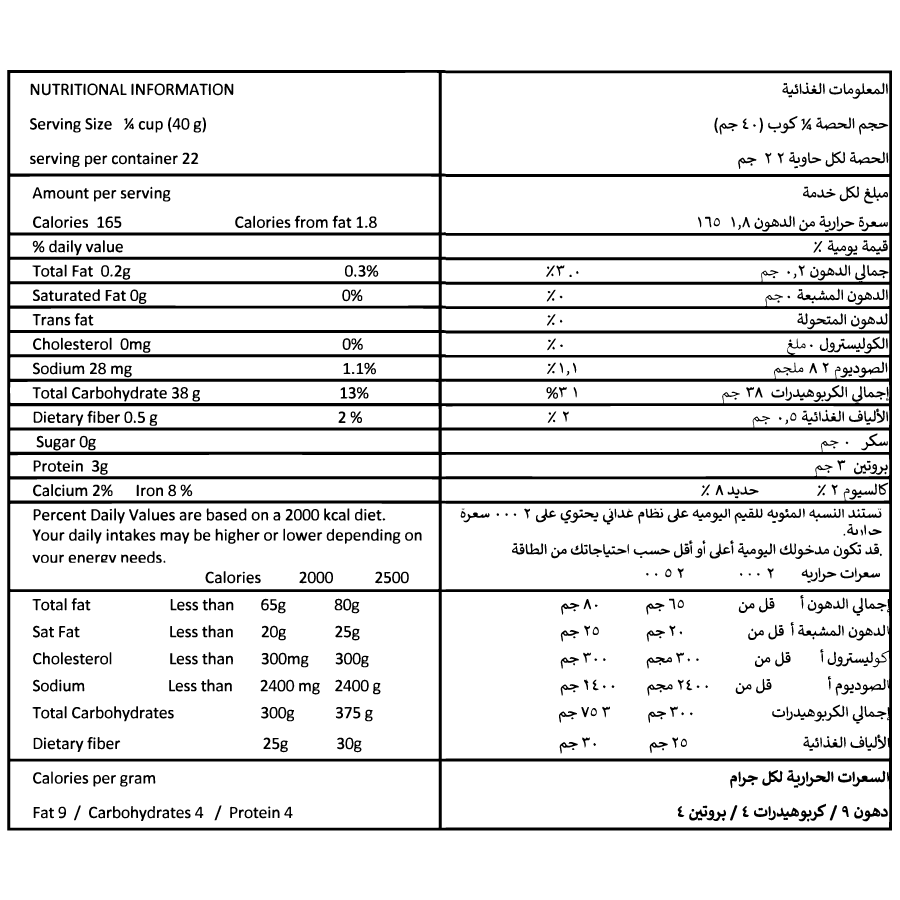 NUTRITIONAL INFORMATION
Serving Size ¼ cup (40 g)
serving per container 22
Amount per serving
Calories 165 Calories from fat 1.8
% daily value
Total Fat 0.2g 0.3%
Saturated Fat 0g 0%
Trans fat
Cholesterol 0mg 0%
Sodium 28 mg 1.1%
Total Carbohydrate 38 g 13%
Dietary fiber 0.5 g 2 %
Sugar 0g
Protein 3g
Calcium 2% Iron 8 %
Percent Daily Values are based on a 2000 kcal diet.
Your daily intakes may be higher or lower depending on
your energy needs.
Calories 2000 2500
Total fat Less than 65g 80g
Sat Fat Less than 20g 25g
Cholesterol Less than 300mg 300g
Sodium Less than 2400 mg 2400 g
Total Carbohydrates 300g 375 g
Dietary fiber 25g 30g
Calories per gram
Fat 9 / Carbohydrates 4 / Protein 4
المعلومات الغذائية
حجم الحصة ¼ كوب (٤٠ جم)
الحصة لكل حاوية ٢ ٢ جم
مبلغ لكل خدمة
سعرة حرارية من الدهون ١,٨ ١٦٥
قيمة يومية ٪
جمالي الدهون ٠,٢ جم ٠. ٣٪
الدهون المشبعة ٠جم ٠٪
لدهون المتحولة ٠٪
الكوليسترول ٠ملغ ٠٪
الصوديوم ٢ ٨ ملجم ١,١٪
إجمالي الكربوهيدرات ٣٨ جم ١ ٣%
الألياف الغذائية ٠,٥ جم ٢ ٪
سكر ٠ جم
بروتين ٣ جم
كالسيوم ٢ ٪ حديد ٨ ٪
تستند النسبه المئويه للقيم اليوميه على نظام غذائي يحتوي على ٢ ٠٠٠ سعرة
حرارية.
.قد تكون مدخولك اليومية أعلى أو أقل حسب احتياجاتك من الطاقة
سعرات حراريه ٢ ٠٠٠ ٢ ٥ ٠٠
إجمالي الدهون أ قل من ٦٥ جم ٨٠ جم
الدهون المشبعة أ قل من ٢٠ جم ٢٥ جم
كوليسترول أ قل من ٣٠٠ مجم ٣٠٠ جم
الصوديوم أ قل من ٢٤٠٠ مجم ٢٤٠٠ جم
إجمالي الكربوهيدرات ٣٠٠ جم ٣ ٧٥ جم
الألياف الغذائية ٢٥ جم ٣٠ جم
السعرات الحرارية لكل جرام
دهون ٩ / كربوهيدرات ٤ / بروتين ٤